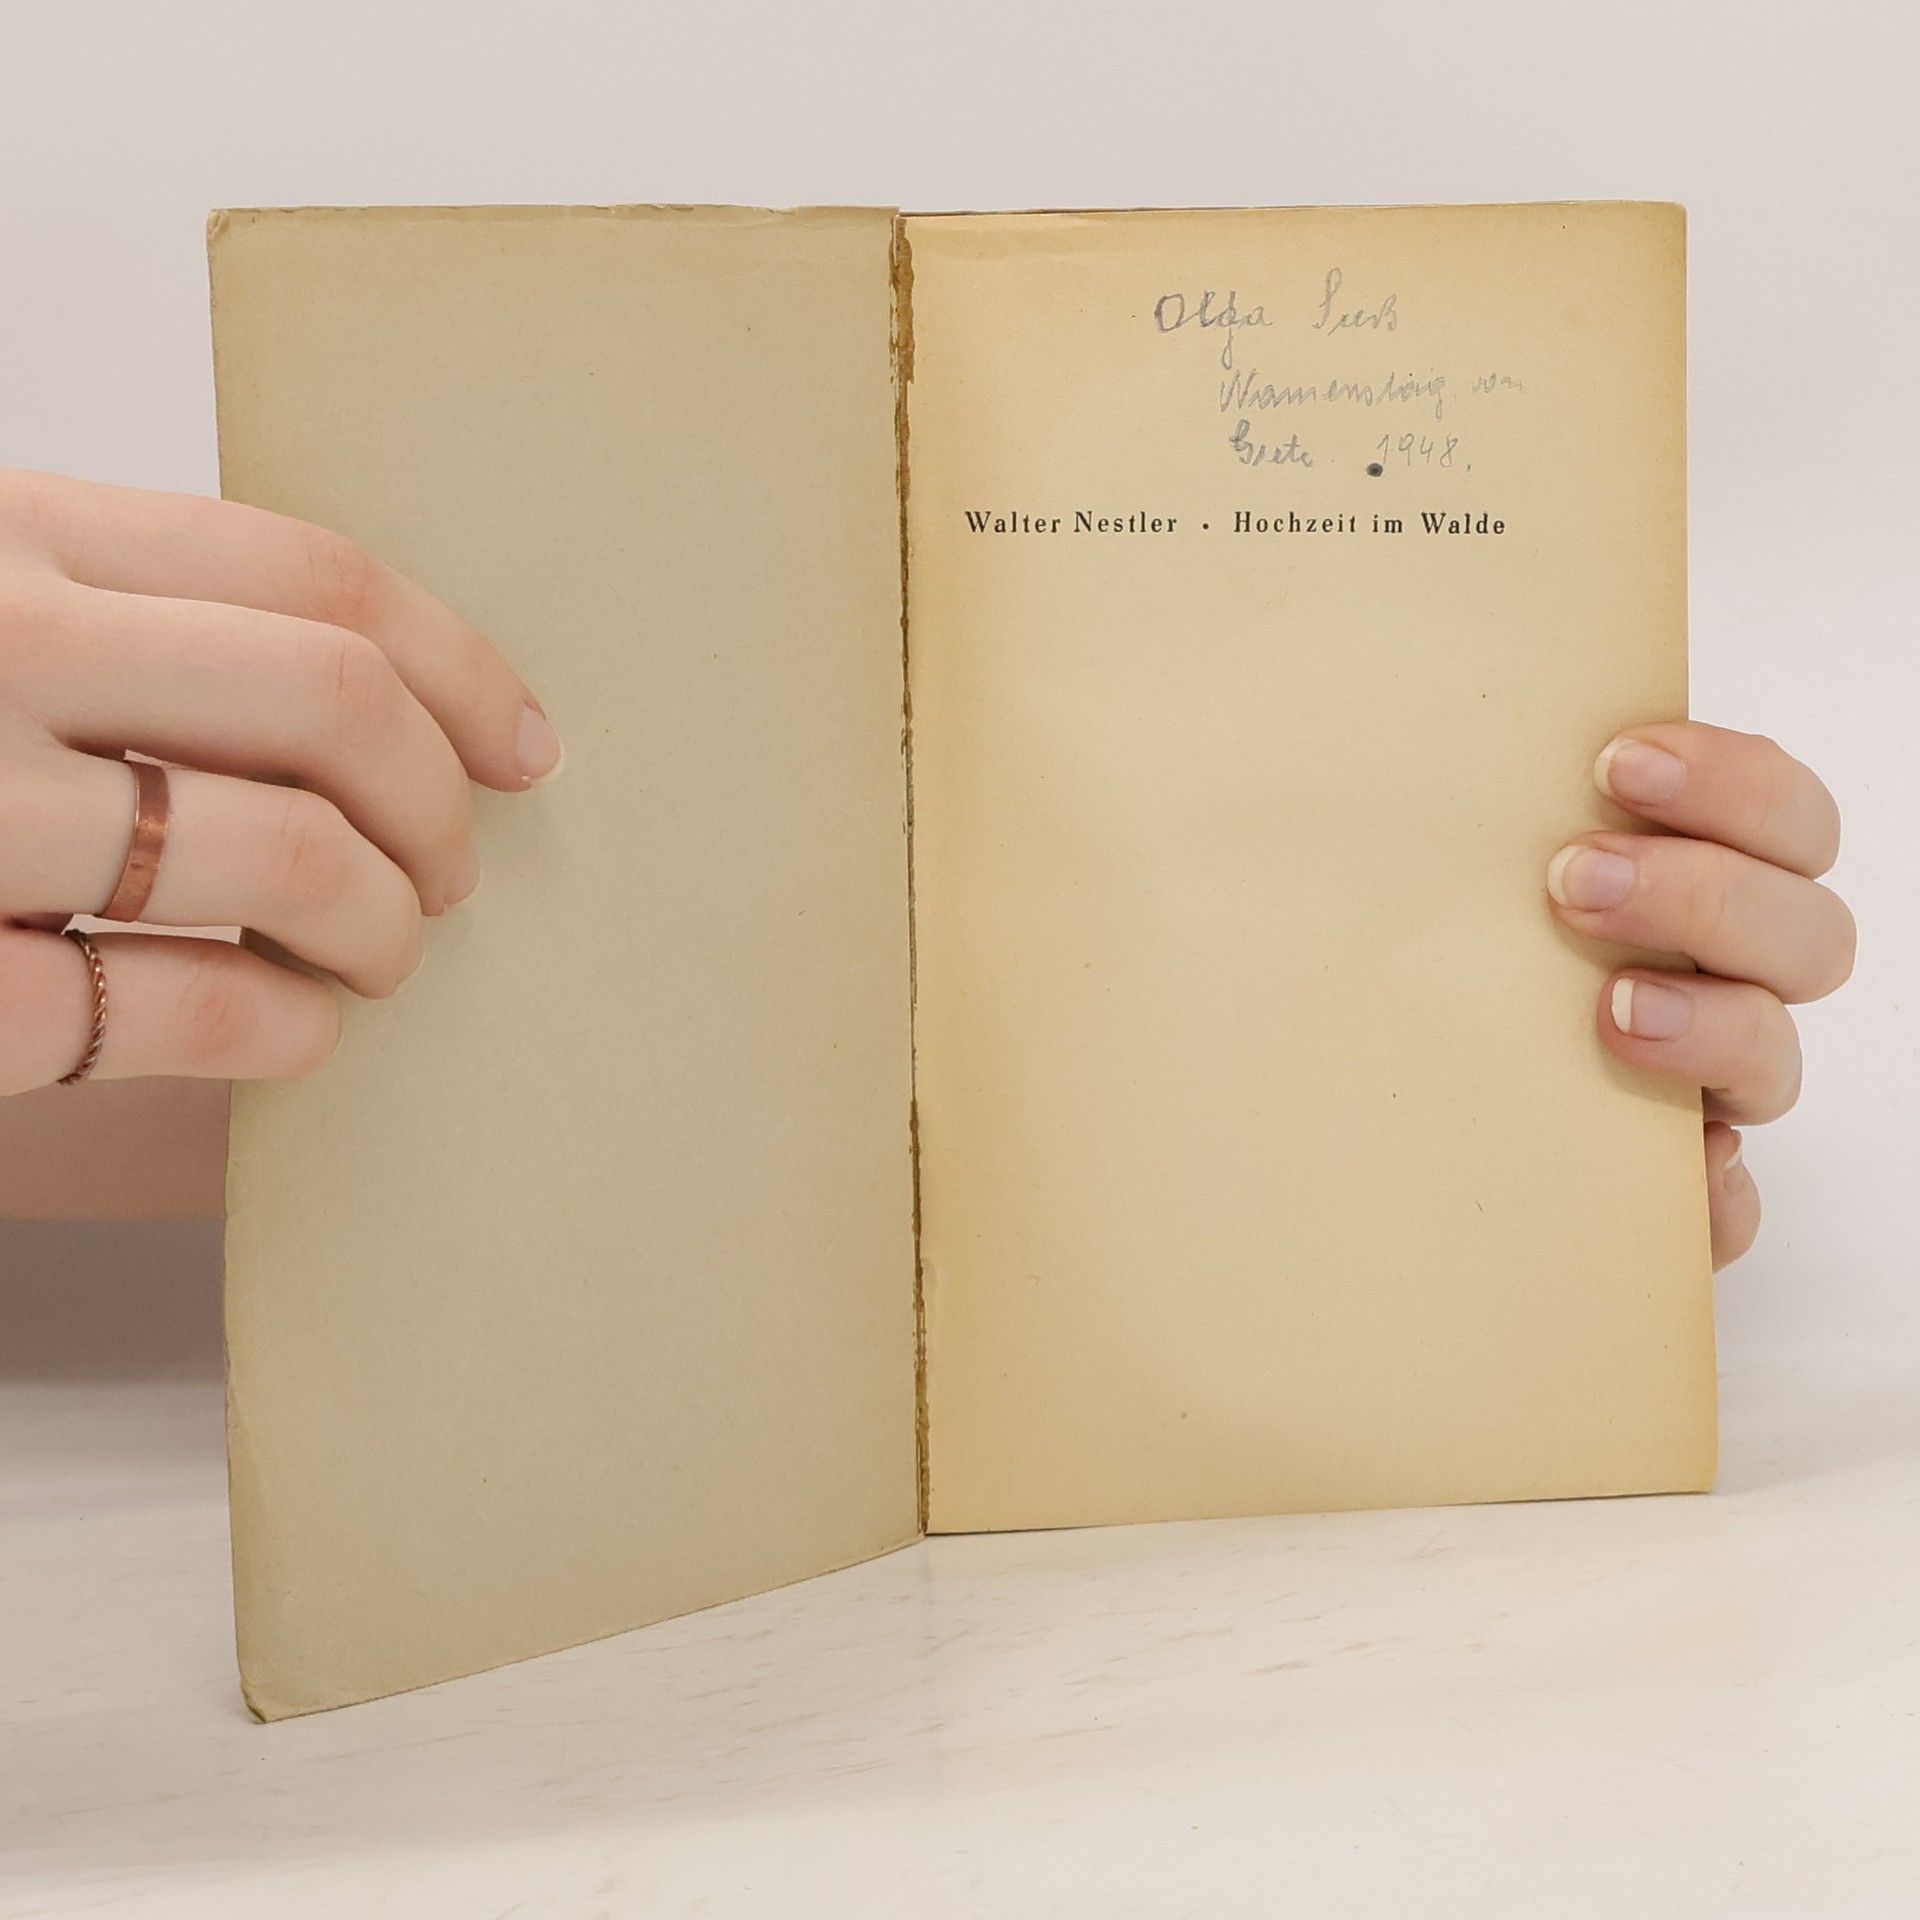 Olga Sieß
Namenstag von
Grete. 1948.
Walter Nestler • Hochzeit im Walde